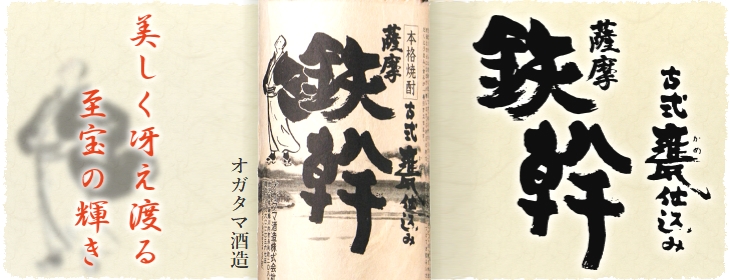 美しく冴え渡る
至宝の輝き
オガタマ酒造
本格焼酎
薩摩
鉄幹
古式甕仕込み
オガタマ酒造株式会社
薩摩
鉄幹
古式甕仕込み
かめ